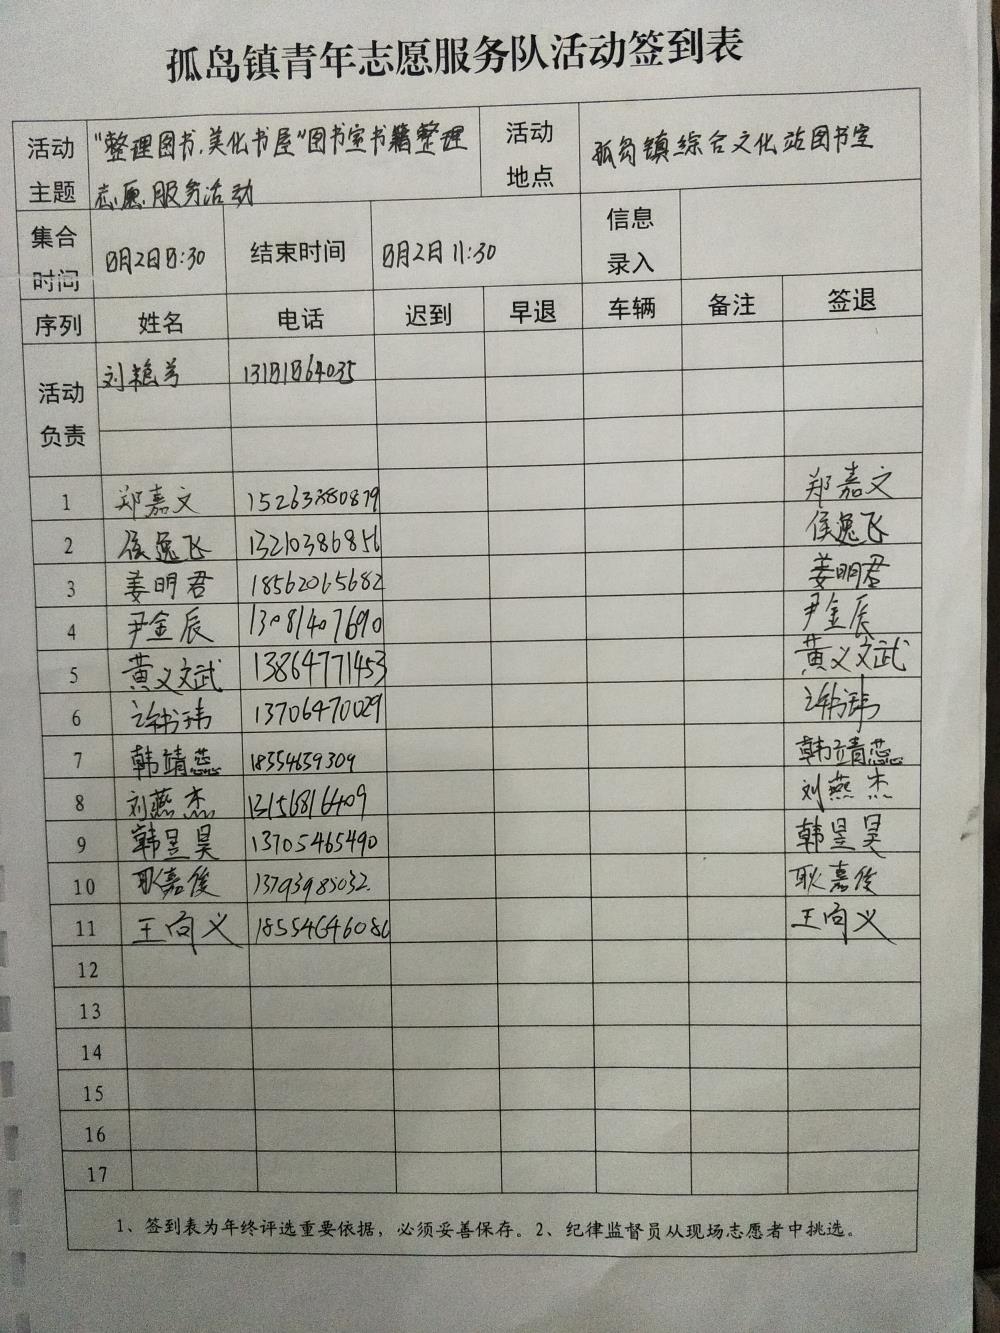 孤岛镇青年志愿服务队活动签到表
活动主题 "整理图书、美化书屋"图书室书籍整理志愿服务活动 活动地点 孤岛镇综合文化站图书室
集合时间 8月2日8:30 结束时间 8月2日11:30 信息录入
序列 姓名 电话 迟到 早退 车辆 备注 签退
活动负责 刘艳芳 13181864035
1 郑嘉文 15263380879 郑嘉文
2 侯逸飞 13210386856 侯逸飞
3 姜明君 18562065682 姜明君
4 尹金辰 13081407690 尹金辰
5 黄义文武 13864771453 黄义文武
6 13706470029
7 韩靖蕊 18354639309 韩靖蕊
8 刘燕杰 13156816409 刘燕杰
9 韩昱昊 13705465490 韩昱昊
10 耿嘉俊 13793985032 耿嘉俊
11 王向义 18554646086 王向义
12
13
14
15
16
17
1、签到表为年终评选重要依据，必须妥善保存。2、纪律监督员从现场志愿者中挑选。